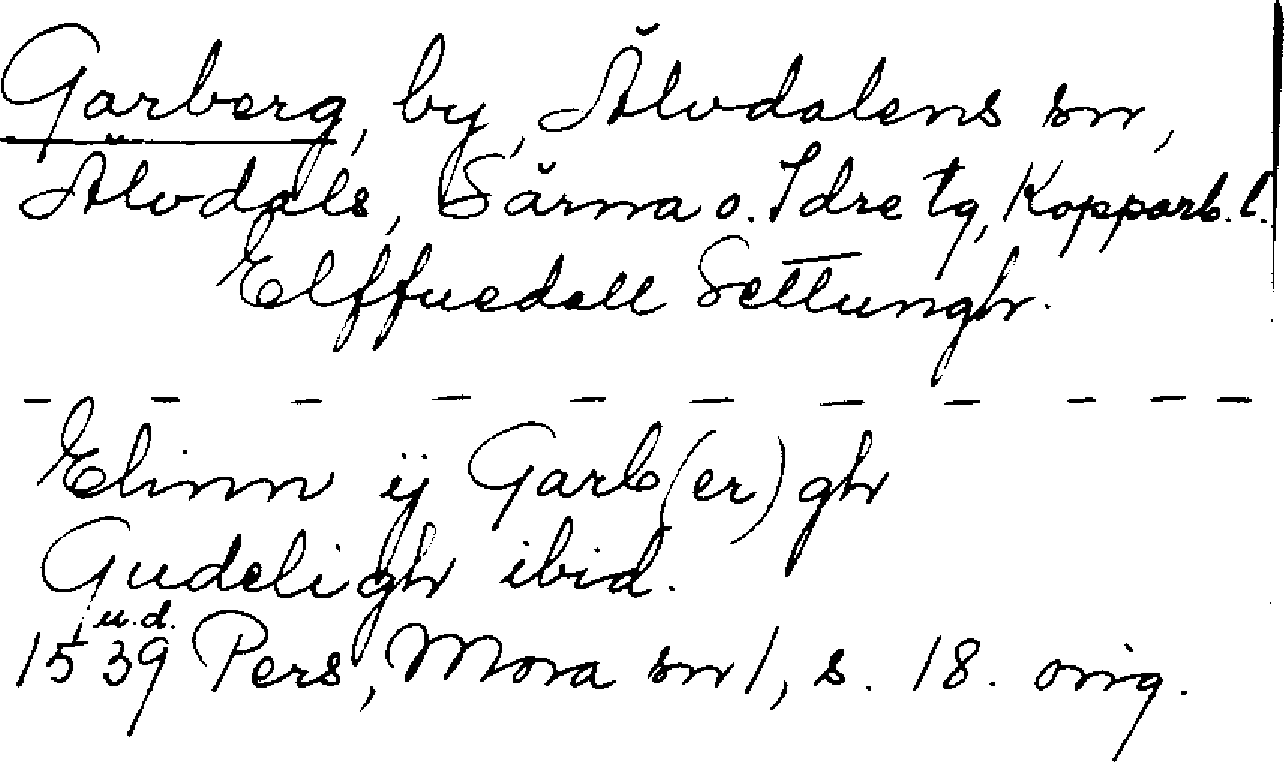 Garberg, by, Älvdalens sn,
Älvdals, Särna o. Idre tg, Kopparb. l.
Elffuedall Settungh.
- - - - - - - - - - -
Elinn ij Garb(er)gh
Gudeligh ibid.
u.d.
1539 Pers, Mora sn 1, s. 18. orig.